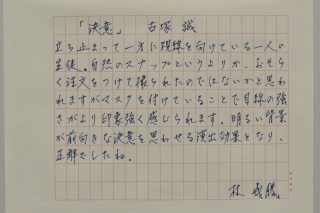 「決意」 古塚 誠
立ち止まって一方に視線を向けている一人の
生徒。自然のスナップというよりか、おそら
く注文をつけて撮られたのではないかと思わ
れますがマスクを付けていることで目線の強
さがより印象強く感じられます。明るい背景
が前向きな決意を思わせる演出効果となり、
正解でしたね。
林